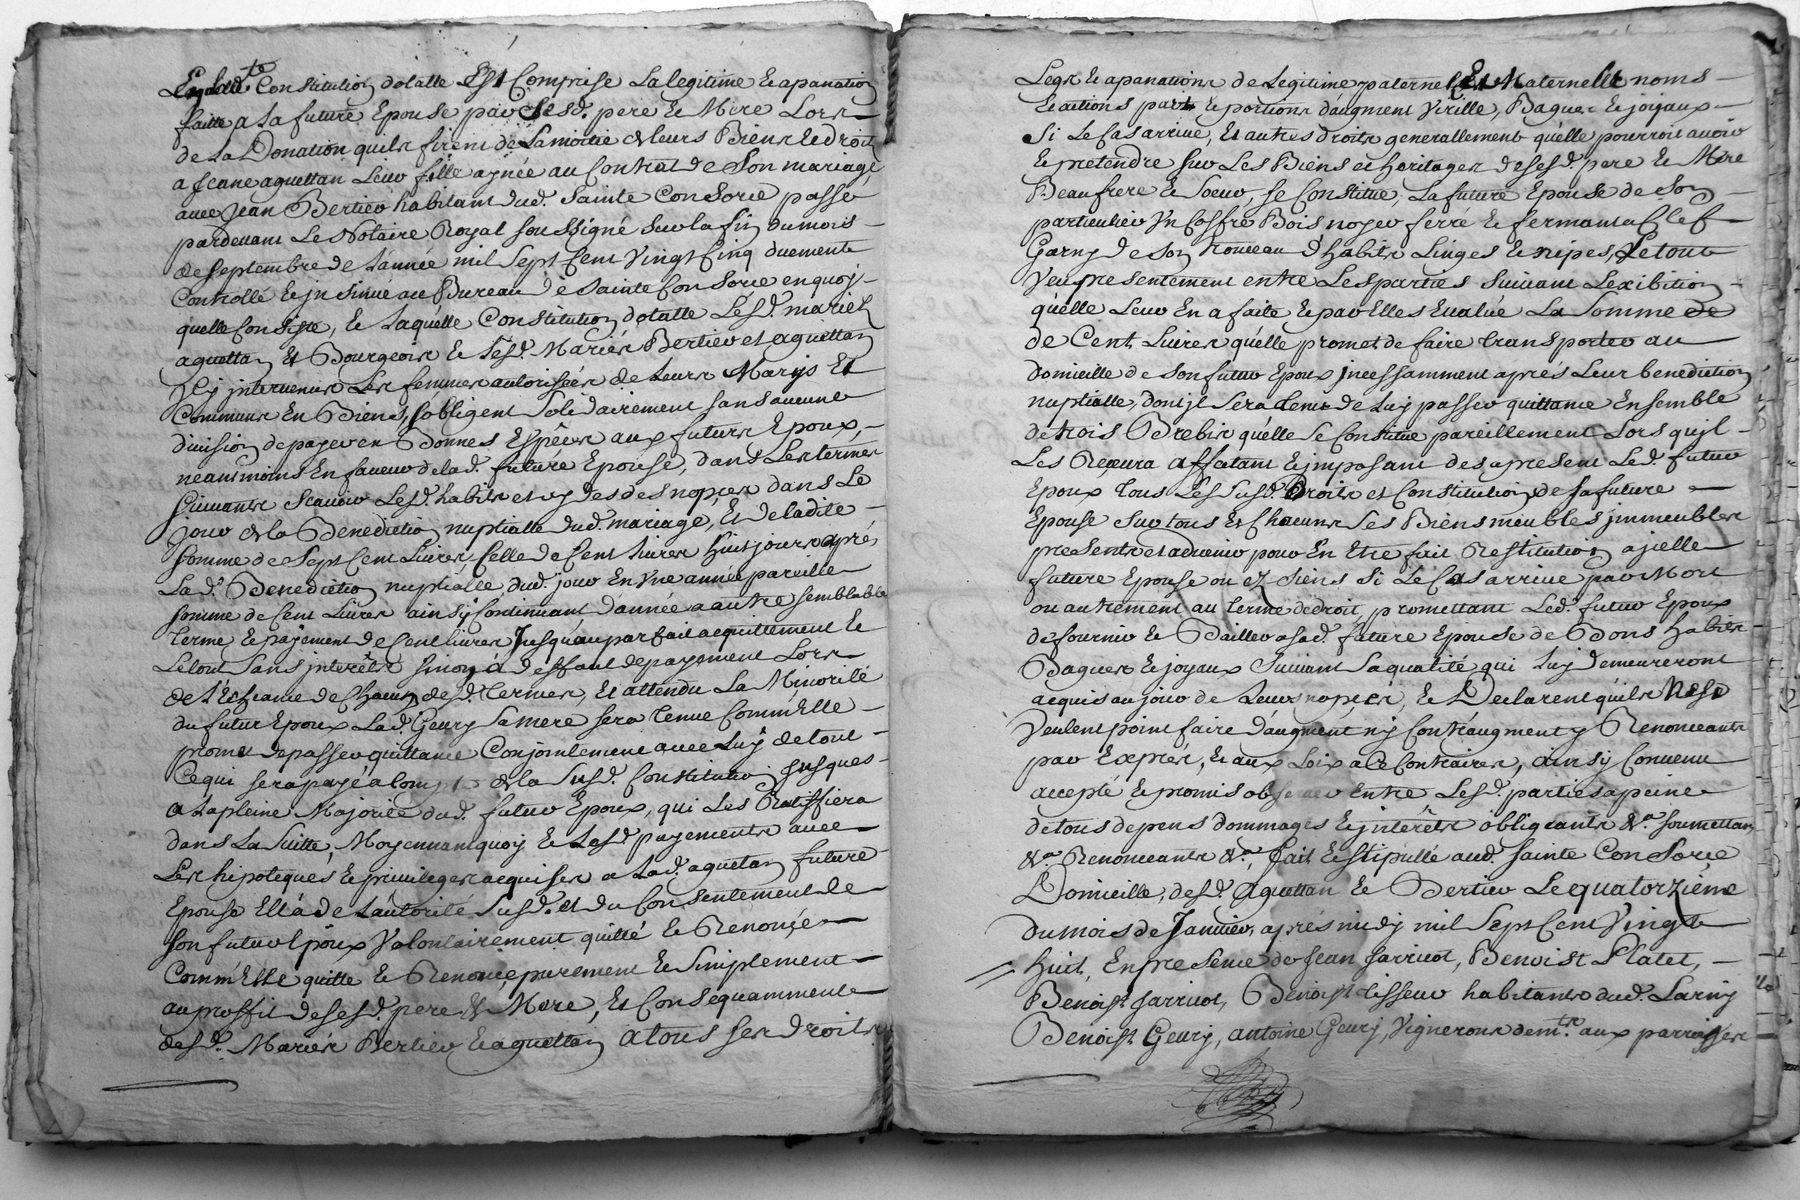 En lad.te Constitution dotalle Est Comprise La legitime & apanation
faitte a La future Epouse par Sesd. pere & Mere Lors
de La Donation quils firent de La moitié de leurs Biens & droits
a Jeane aguettan Leur fille aynée au Contrat de Son mariage
avec Jean Bertier habitant dud. Sainte Consorce passé
pardevant Le Notaire Royal soussigné Sur la fin du mois
de Septembre de L'année mil Sept Cent Vingt Cinq duement
Controllé & insinué au Bureau de Sainte Consorce en quoy
quelle Consiste, & Laquelle Constitution dotalle Lesd. mariez
aguettan Et Bourgeois & Lesd. Mariés Bertier et aguettan
Jcy intervenus Les femmes autorisées de Leurs Marys Et
Communs En Biens, sobligent Solidairement sans aucune
division de payer en Bonnes Espèces aux futurs Epoux,
neantmoins En faveur de lad. future Epouse, dans Les termes
suivants Scavoir Lesd. habits et desd. nopces dans Le
jour de la Benediction nuptialle dud. mariage, Et de ladite
somme de Sept Cent Livres, Celle de Cent Livres huit jours après
Lad. Benediction nuptialle dud. jour En Une année pareille
somme de Cent Livres ainsy Continuant d'année a autre semblable
terme & payement de Cent livres Jusqu'au parfait acquittement &
Le tout Sans interêts sinon à deffaut de payement Lors
de L'Echeance de Chacun desd. Termes, Et attendu La Minorité
du futur Epoux Lad. Geury Sa mere sera tenue Comm'Elle
promet de passer quittance Conjointement avec Luy de tout
Ce qui sera payé a Compte de la Susd. Constitution jusques
a La pleine Majorité dud. futur Epoux, qui Les Ratiffiera
dans La Suitte, Moyennant quoy & Lesd. payements avec
Les hipoteques & privileges acquises a Lad. aguetan future
Epouse Ell'a de L'autorité Susd. et du Consentement de
son futur Epoux Volontairement quitté & Renoncé
Comm'Elle quitte & Renonce, purement & Simplement
au proffit de sesd. pere & Mere, Et Consequamment
desd. Mariés Bertier & aguettan a tous ses droits
Legs & apanations de Legitime paternelle Et Maternelle noms
& actions parts & portions d'augment Virille, Bagues & joyaux
Si Le Cas arrive, Et autres droits generallement qu'elle pourroit avoir
& pretendre sur Les Biens & heritages de sesd. pere & Mere
Beaufrere & Soeur, se Constitue, La future Epouse de Son
particulier Vn Coffre Bois noyer ferré & fermant a Clef
Garny de Son Trousseau d'habits Linges & nipes, Le tout
Veu presentement entre Les parties Suivant L'exibition
qu'elle Leur En a faite & par Elles Evalué La Somme de
de Cent Livres qu'elle promet de faire transporter au
domicille de son futur Epoux jncessamment aprés Leur benediction
nuptialle, dont jl sera tenu de Luy passer quittance Ensemble
de trois Brebis qu'elle se Constitue pareillement Lors qu'jl
Les Recevra affectant & imposant des apresent Led. futur
Epoux tous Les Susd. Droits et Constitution de sa future
Epouse Sur tous Et Chacuns Ses Biens meubles jmmeubles
presents et advenir pour En Etre fait Restitution a jcelle
future Epouse ou ez Siens Si Le Cas arrive par Mort
ou autrement au terme de droit, promettant Led. futur Epoux
de fournir & Bailler a sad. future Epouse de Bons habits
Bagues & joyaux Suivant Sa qualité qui Luy demeureront
acquis au jour de Leurs nopces, & Declarent qu'ils Ne se
Veulent point faire d'augment ny Contr'augment y Renonceants
par Exprés, & aux Loix a Ce Contraires, ainsy Convenu
accepté & promis observer Entre Lesd. parties a peine
de tous depens dommages & interêts obligeants &.a soumettan
&.a Renonceants &.a, fait & stipullé aud. sainte Consorce
Domicille, desd. Aguettan & Bertier Le quatorzième
du mois de Janvier, aprés midy mil Sept Cent Vingt
huit, En presence de Jean Jarricot, Benoist Platet,
Benoist Jarricot, Benoist tisseur habitants dud. Larny
Benoist Geury, antoine Geury, Vignerons dem.ts aux parroisses